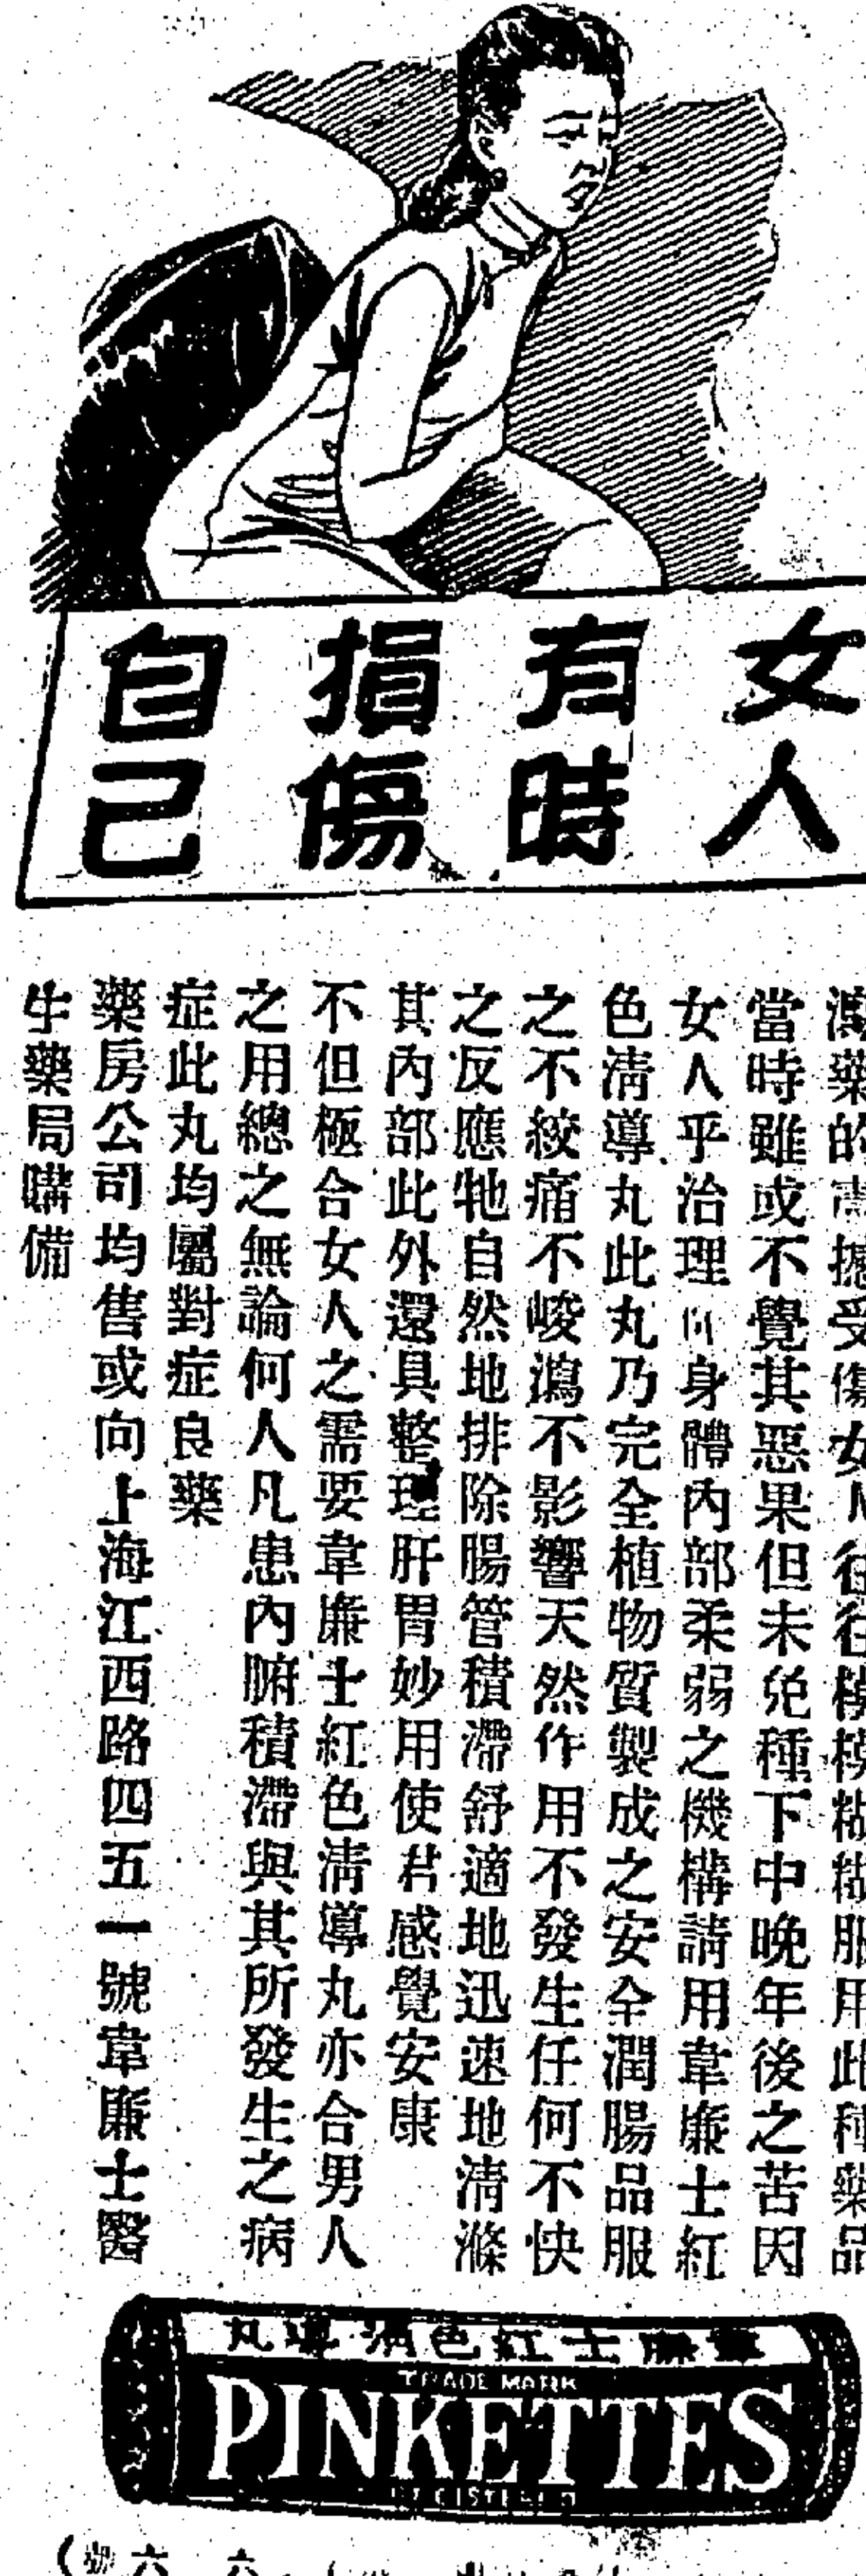 女人
有時
損傷
自己
瀉藥的受傷女人往往模模糊糊服用此種藥品
當時雖或不覺其惡果但未免種下中晚年後之苦因
女人乎治理身體內部柔弱之機構請用韋廉士紅
色清導丸此丸乃完全植物質製成之安全潤腸品服
之不絞痛不峻瀉不影響天然作用不發生任何不快
之反應牠自然地排除腸管積滯舒適地迅速地清滌
其內部此外還具整理肝胃妙用使君感覺安康
不但極合女人之需要韋廉士紅色清導丸亦合男人
之用總之無論何人凡患內腑積滯與其所發生之病
症此丸均屬對症良藥
藥房公司均售或向上海江西路四五一號韋廉士醫
生藥局購備
韋廉士紅色清導丸
TRADE MARK
PINKETTES
REGISTERED